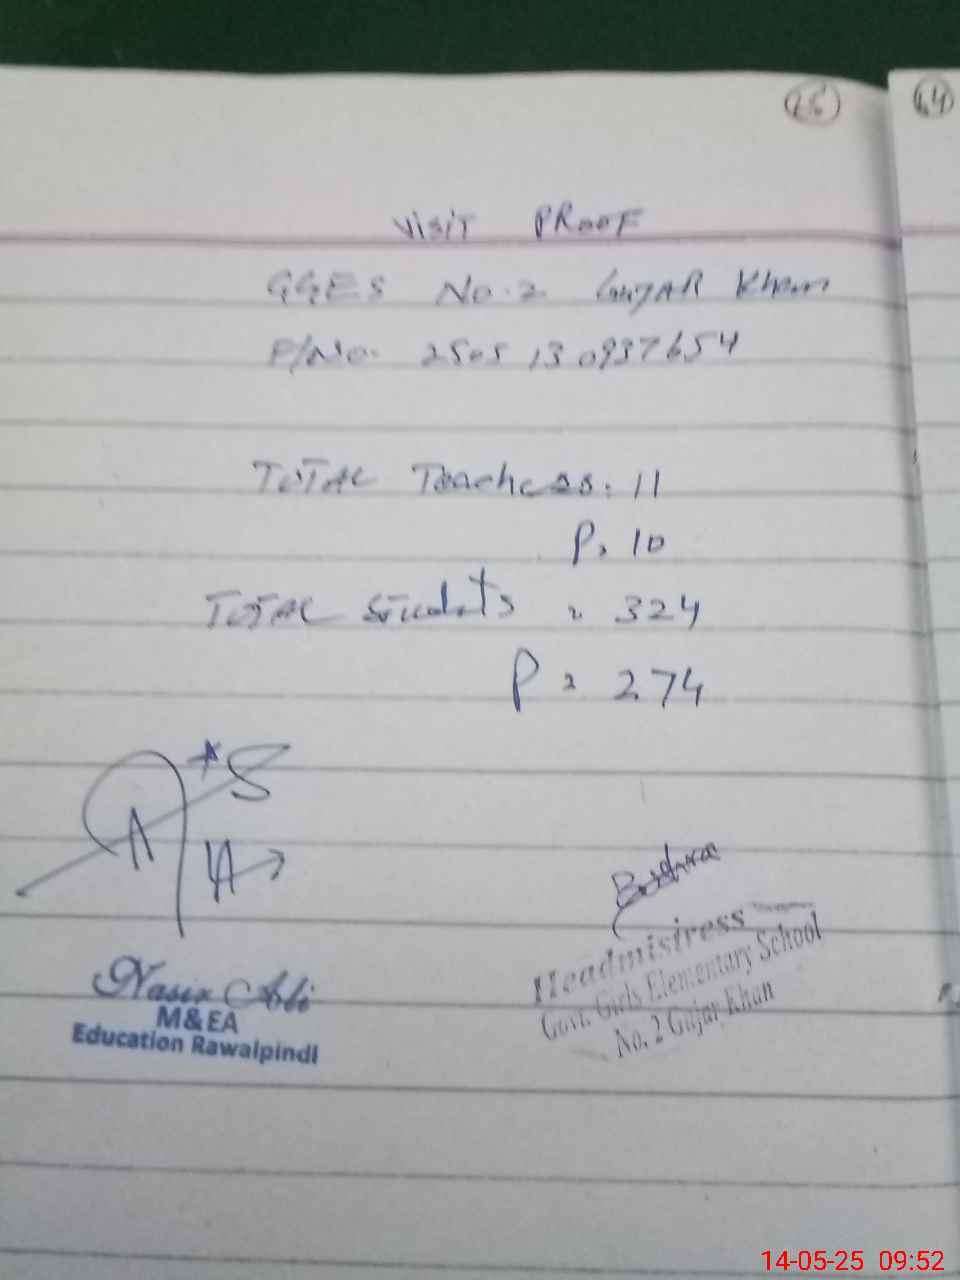 64
VISIT PROOF
GGES No.2 GUJAR Khan
P/No. 2505130937654
TOTAL Teachers: 11
P. 10
TOTAL Students = 324
P = 274
Bushra
Nasir Ali
M&EA
Education Rawalpindi
Headmistress
Govt. Girls Elementary School
No. 2 Gujar Khan
14-05-25 09:52